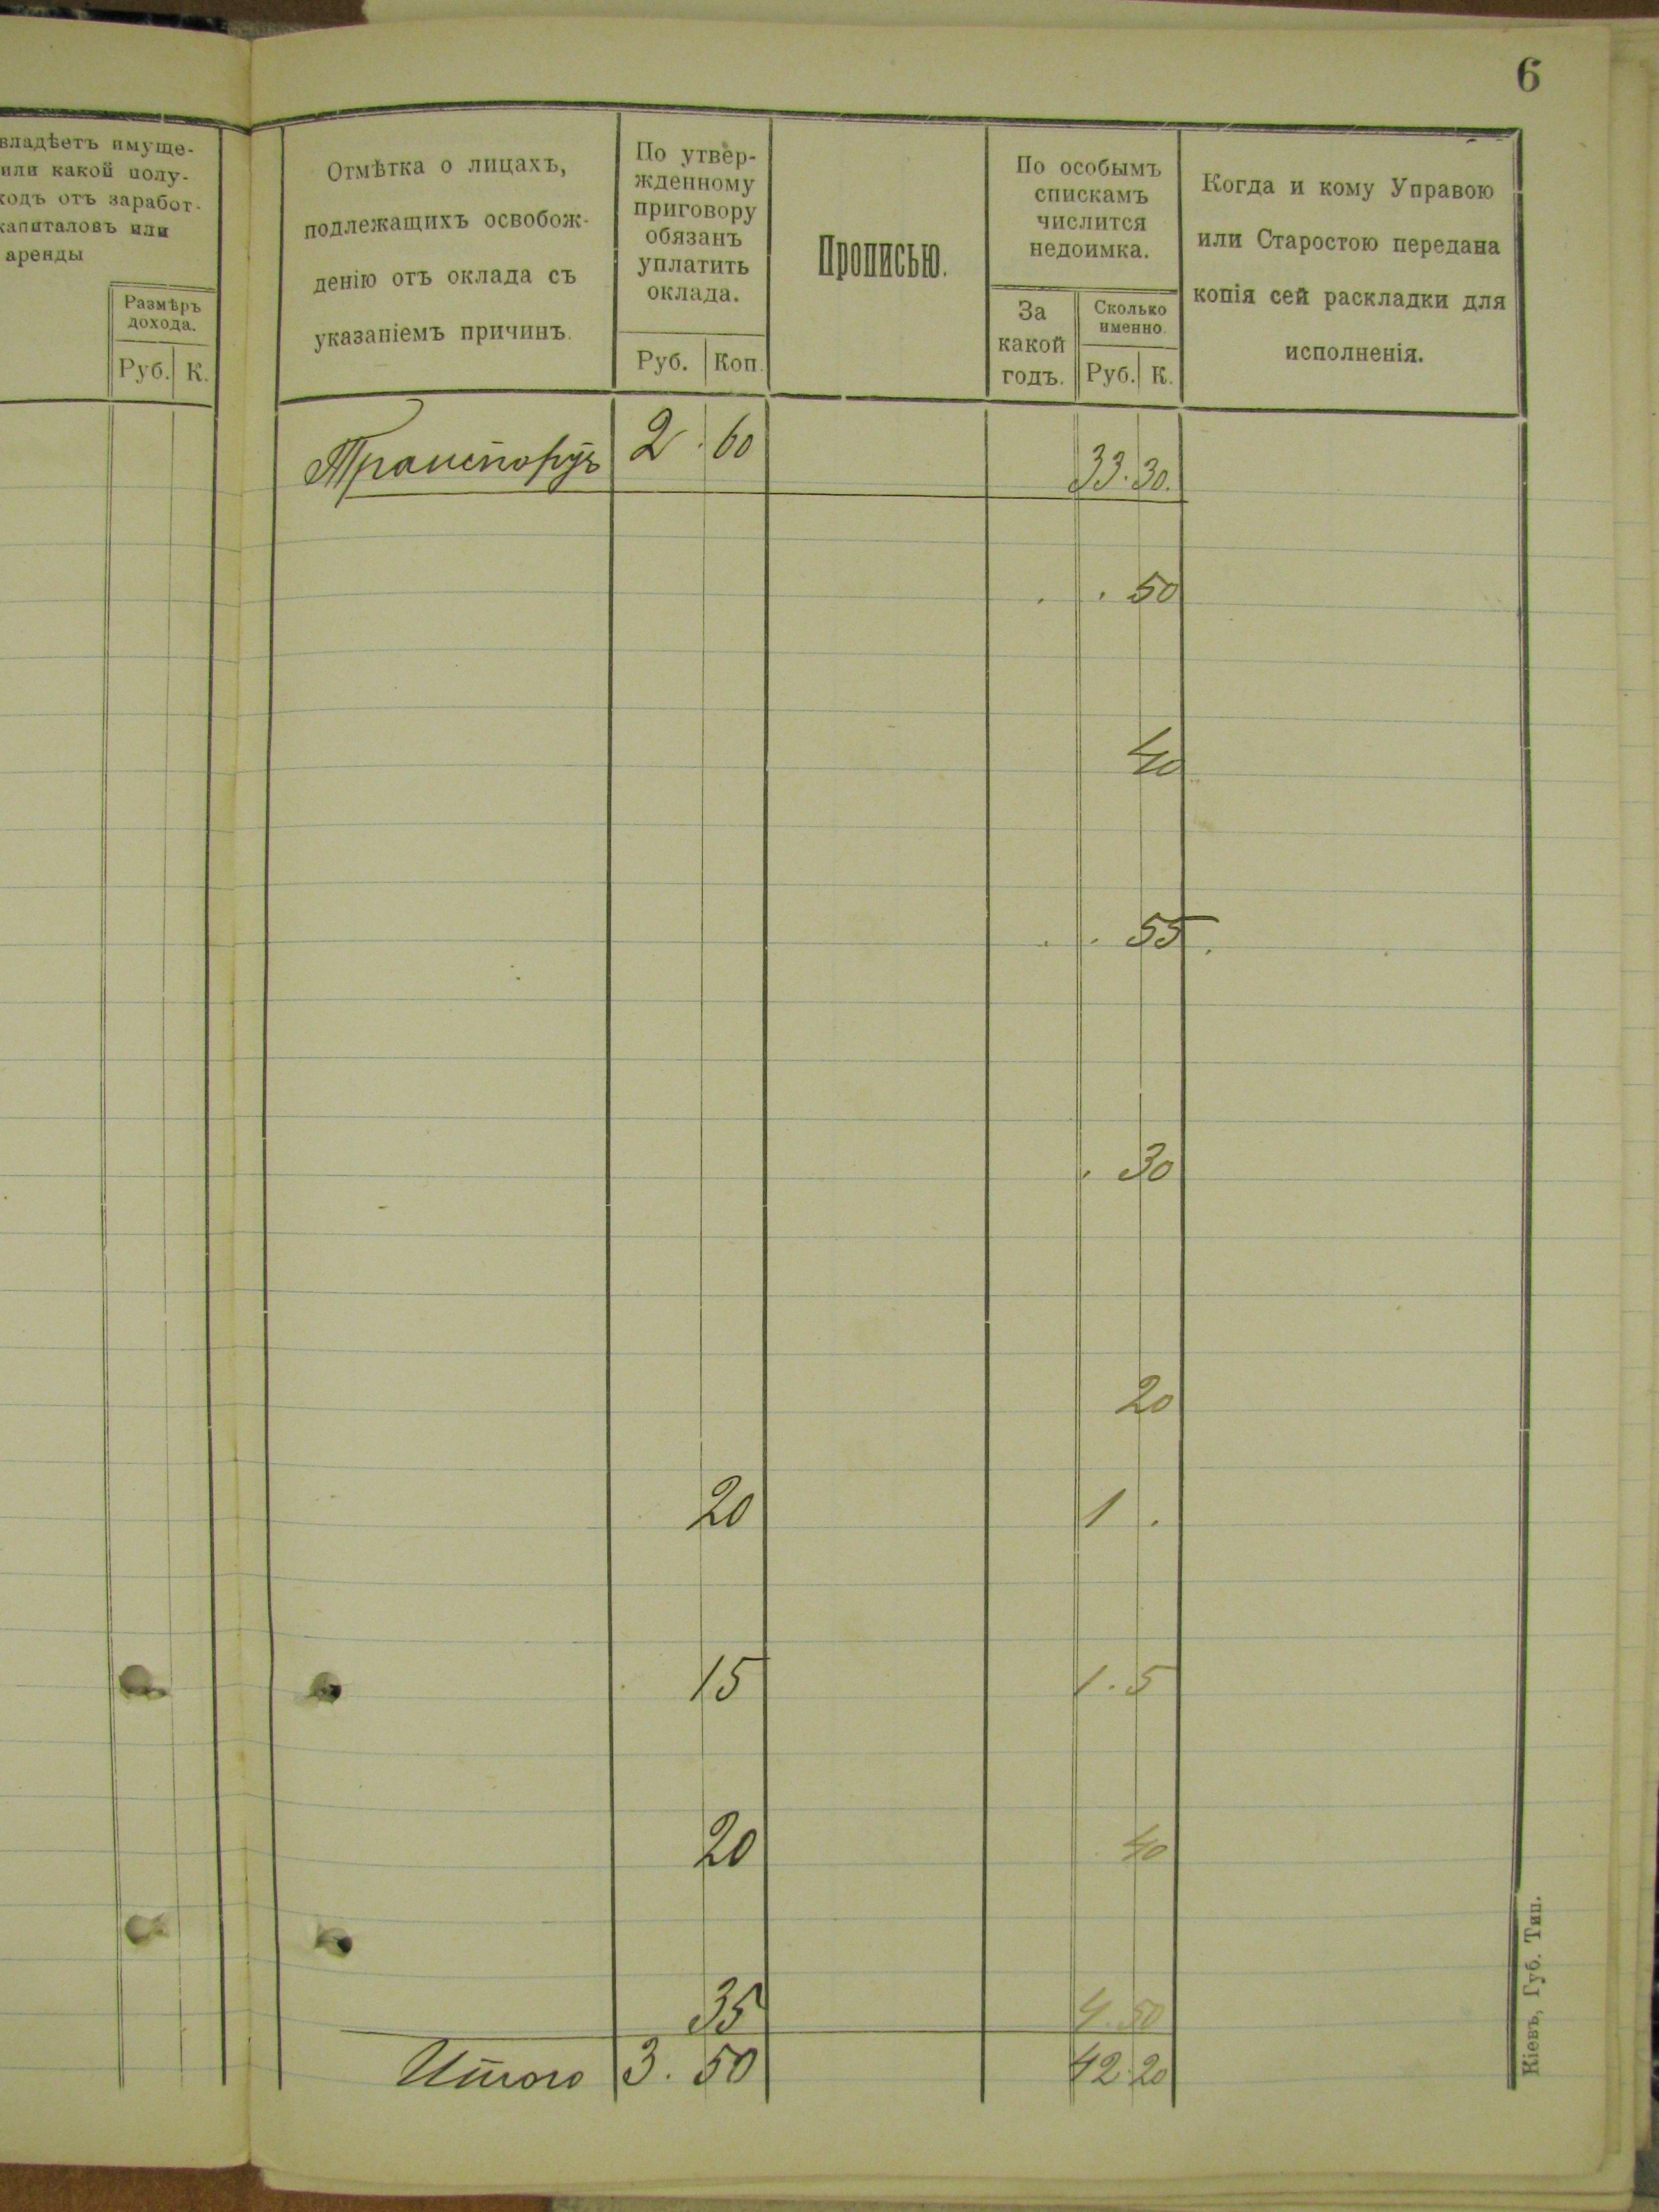 6
владѣетъ имуще-
или какой полу-
ходъ отъ заработ-
капиталовъ или
аренды
Размѣръ
дохода.
Руб. К.
Отмѣтка о лицахъ,
подлежащихъ освобож-
денію отъ оклада съ
указаніемъ причинъ.
По утвер-
жденному
приговору
обязанъ
уплатить
оклада.
Руб. Коп.
Прописью.
По особымъ
спискамъ
числится
недоимка.
За
какой
годъ.
Сколько
именно.
Руб. К.
Когда и кому Управою
или Старостою передана
копія сей раскладки для
исполненія.
Транспортъ 2. 60 33. 30.
. . 50
40
. . 55.
. 30
20
20 1 .
15 1. 5
20 40
35 4. 50
Итого 3. 50 42. 20
Кіевъ, Губ. Тип.